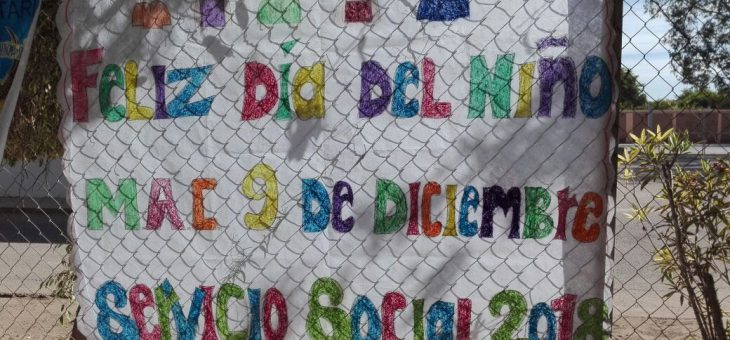 Feliz Día del Niño
Mac 9 de Diciembre
Servicio Social 2018